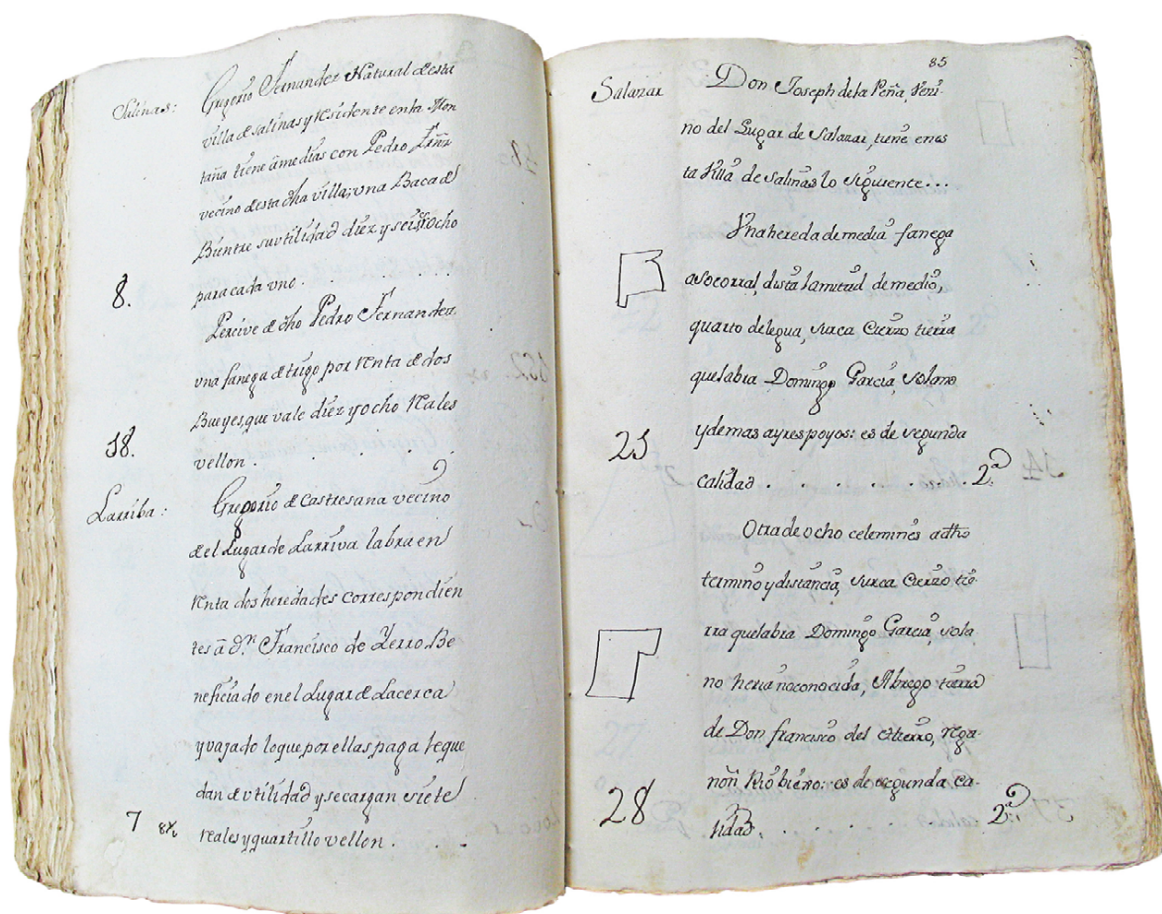 Salinas:
Gregorio Fernandez Natural de esta
villa de salinas y residente enta Mon
taña tiene â medias con Pedro Frnz
vecino desta dha villa; una Baca de
Bientre su utilidad diez y seis
para cada uno.
8.
Percive de dho Pedro Fernandez
una fanega de trigo por Renta de dos
Bueyes, que vale diez y ocho Reales
18.
vellon . . . . .
Larriba:
Gregorio de Castresana vecino
de el Lugar de Larriva labra en
Renta dos heredades correspondien
tes â Dn. Francisco de Yerro, Be
neficiado en el Lugar de Lacerca
y vajado lo que por ellas paga le que
dan de utilidad y se cargan siete
7
reales y quartillo vellon . . .
85
Salazar
Don Joseph dela Peña, Veci-
no del Lugar de Salazar, tiene enes
ta Villa de Salinas lo siguiente...
Vna hereda de media fanega
a socorral, dista la mitad de medio,
quarto de legua, surca Cierzo tierra
que labra Domingo Garcia, solano
23
y demas ayres poyos: es de segunda
calidad . . . . . . . 2ª
Otra de ocho celemines a dho
termino y distancia, surca Cierzo tie-
rra que labra Domingo Garcia, sola
no heria no conocida, Abrego tierra
de Don francisco del Hierro, rega-
ñon Rio biexo: es de segunda ca-
28
lidad . . . . . . . 2ª